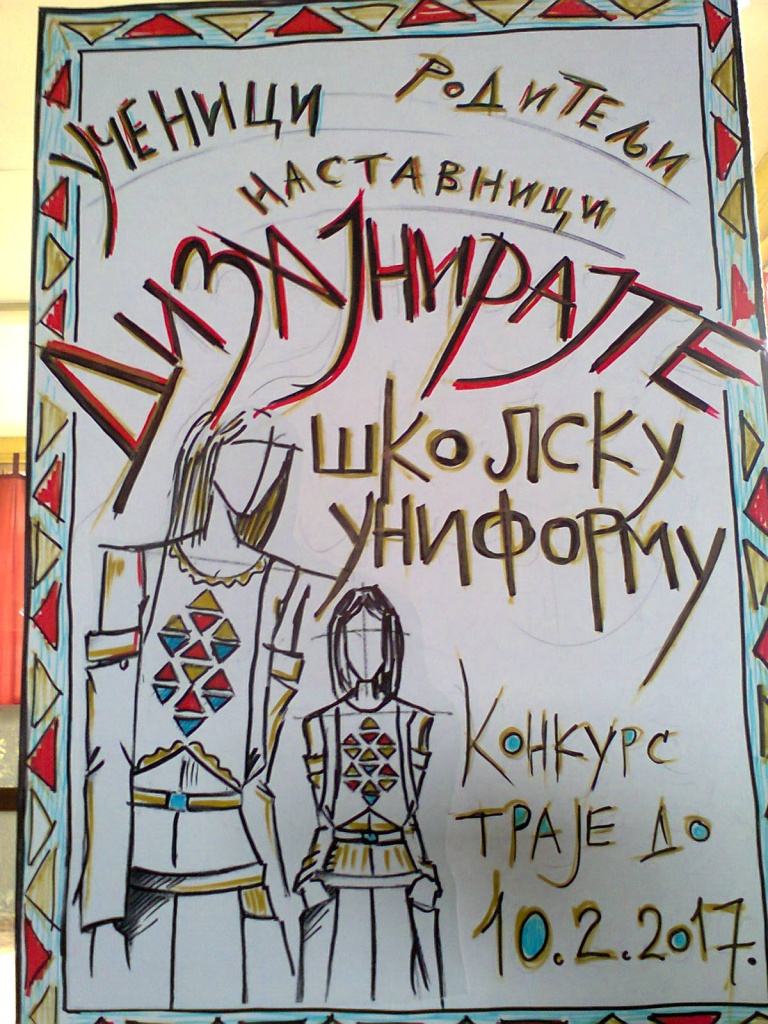 УЧЕНИЦИ РОДИТЕЉИ
НАСТАВНИЦИ
ДИЗАЈНИРАЈТЕ
ШКОЛСКУ
УНИФОРМУ
КОНКУРС
ТРАЈЕ ДО
10.2.2017.